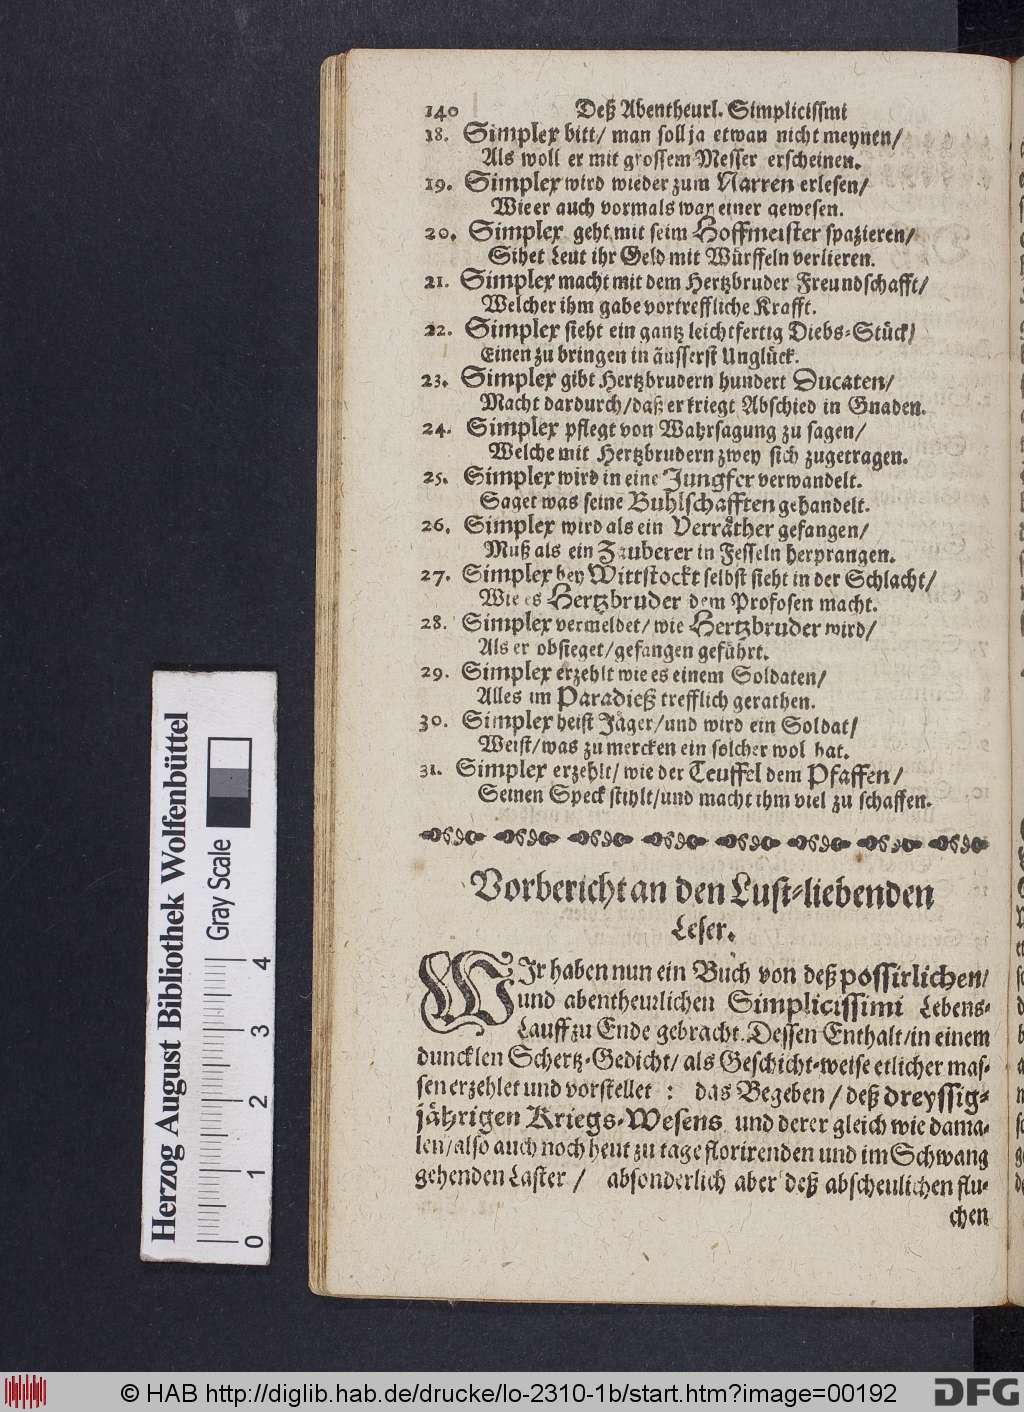 140 Deß Abentheurl. Simplicissmi
18. Simplex bitt/ man soll ja etwan nicht meynen/
Als woll er mit grossem Messer erscheinen.
19. Simplex wird wieder zum Narren erlesen/
Wie er auch vormals war einer gewesen.
20. Simplex geht mit seim Hoffmeister spazieren/
Sihet Leut ihr Geld mit Würffeln verlieren.
21. Simplex macht mit dem Hertzbruder Freundschafft/
Welcher ihm gabe vortreffliche Krafft.
22. Simplex sieht ein gantz leichtfertig Diebs-Stück/
Einen zu bringen in äusserst Unglück.
23. Simplex gibt Hertzbrudern hundert Ducaten/
Macht dardurch/ daß er kriegt Abschied in Gnaden.
24. Simplex pflegt von Wahrsagung zu sagen/
Welche mit Hertzbrudern zwey sich zugetragen.
25. Simplex wird in eine Jungfer verwandelt.
Saget was seine Buhlschafften gehandelt.
26. Simplex wird als ein Verräther gefangen/
Muß als ein Zauberer in Fesseln herprangen.
27. Simplex bey Wittstockt selbst sieht in der Schlacht/
Wie es Hertzbruder dem Profosen macht.
28. Simplex vermeldet/ wie Hertzbruder wird/
Als er obsieget/ gefangen geführt.
29. Simplex erzehlt wie es einem Soldaten/
Alles im Paradieß trefflich gerathen.
30. Simplex heist Jäger/ und wird ein Soldat/
Weist/ was zu mercken ein solcher wol hat.
31. Simplex erzehlt/ wie der Teuffel dem Pfaffen/
Seinen Speck stihlt/ und macht ihm viel zu schaffen.
Vorbericht an den Lust-liebenden
Leser.
WIr haben nun ein Buch von deß possirlichen/
und abentheurlichen Simplicissimi Lebens-
Lauff zu Ende gebracht. Dessen Enthalt/ in einem
duncklen Schertz-Gedicht/ als Geschicht-weise etlicher mas-
sen erzehlet und vorstellet : das Begeben / deß dreyssig-
jährigen Kriegs-Wesens und derer gleich wie dama-
len/ also auch noch heut zu tage florirenden und im Schwang
gehenden Laster / absonderlich aber deß abscheulichen flu-
chen
Herzog August Bibliothek Wolfenbüttel
Gray Scale
0 1 2 3 4
© HAB http://diglib.hab.de/drucke/lo-2310-1b/start.htm?image=00192
DFG